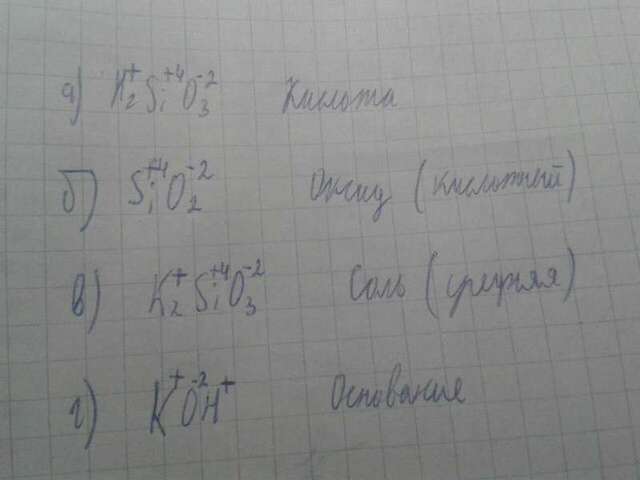 а) H₂⁺Si⁺⁴O₃⁻² Кислота
б) Si⁺⁴O₂⁻² Оксид (кислотный)
в) K₂⁺Si⁺⁴O₃⁻² Соль (средняя)
г) K⁺O⁻²H⁺ Основание